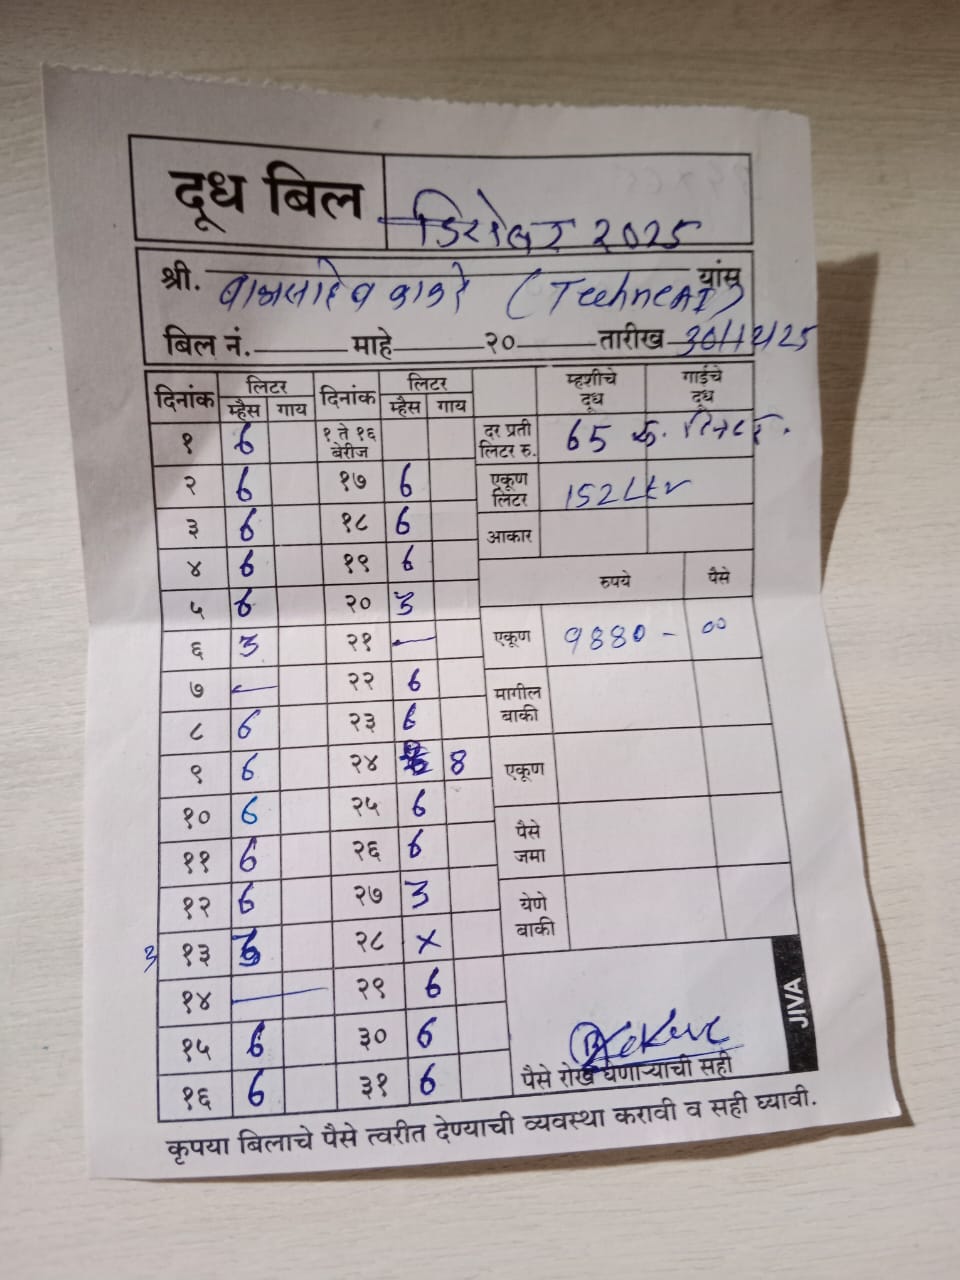 दूध बिल
डिसेंबर 2025
श्री. बाळासाहेब काकडे (Technc AI) यांसू
बिल नं. माहे २० तारीख 30/12/25
दिनांक लिटर दिनांक लिटर म्हशीचे दूध गाईचे दूध
म्हैस गाय म्हैस गाय
१ 6 १ ते १६ बेरीज दर प्रती लिटर रु. 65 रु.
२ 6 १७ 6 एकूण लिटर 152 Ltr
३ 6 १८ 6 आकार
४ 6 १९ 6 रुपये पैसे
५ 6 २० 3
६ 3 २१ — एकूण 9880 - 00
७ — २२ 6 मागील बाकी
८ 6 २३ 6
९ 6 २४ 8 एकूण
१० 6 २५ 6
११ 6 २६ 6 पैसे जमा
१२ 6 २७ 3 येणे बाकी
3 १३ 3 २८ x
१४ — २९ 6
१५ 6 ३० 6
१६ 6 ३१ 6 पैसे रोख घेणाऱ्याची सही
JIVA
कृपया बिलाचे पैसे त्वरीत देण्याची व्यवस्था करावी व सही घ्यावी.